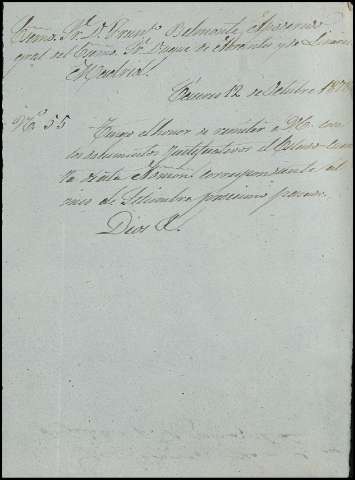 Excmo. Sr. D. Franco. Belmonte, Apoderado
gral del Excmo. Sr. Duque de Abrantes y de Linares
Madrid.
Cáceres 12 de Octubre 1878
No. 55
Tengo el honor de remitir a V.E. con
los documentos justificativos el
de esta Admón. correspondiente al
mes de Setiembre próximo pasado.
Dios &.